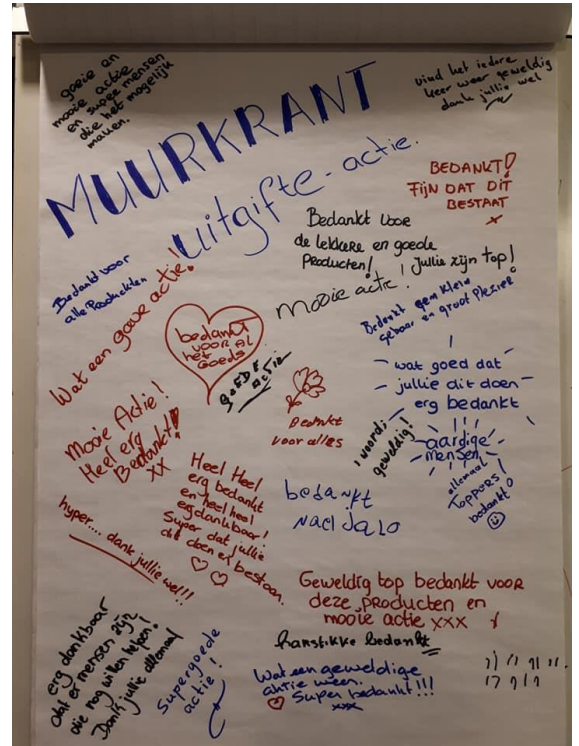 goeie en
mooie actie
en super mensen
die het mogelijk
maken.
vind het iedere
keer weer geweldig
dank jullie wel
MUURKRANT
uitgifte-actie.
BEDANKT!
FIJN DAT DIT
BESTAAT
x
Bedankt voor
de lekkere en goede
Producten!
Jullie zijn top!
Bedankt voor
alle Produckten
Wat een gave actie!
mooie actie!
Bedankt klein
gebaar en groot Plezier
bedankt
voor al
het
Goeds
GOEDE
ACTIE
wat goed dat
jullie dit doen
erg bedankt
Bedankt
voor alles
geweldig!
aardige
mensen
allemaal
Toppors!
bedankt!
Mooie Actie!
Heel erg
Bedankt!
xx
Heel Heel
erg bedankt
en heel heel
erg dankbaar!
Super dat jullie
dit doen en bestaan.
bedankt
hyper.... dank jullie wel!!
Geweldig top bedankt voor
deze producten en
mooie actie xxx
hartstikke bedankt
erg dankbaar
dat er mensen zijn
die nog willen helpen!
Dank jullie allemaal
Supergoede
actie!
Wat een geweldige
aktie weer.
Super bedankt!!!
xxx